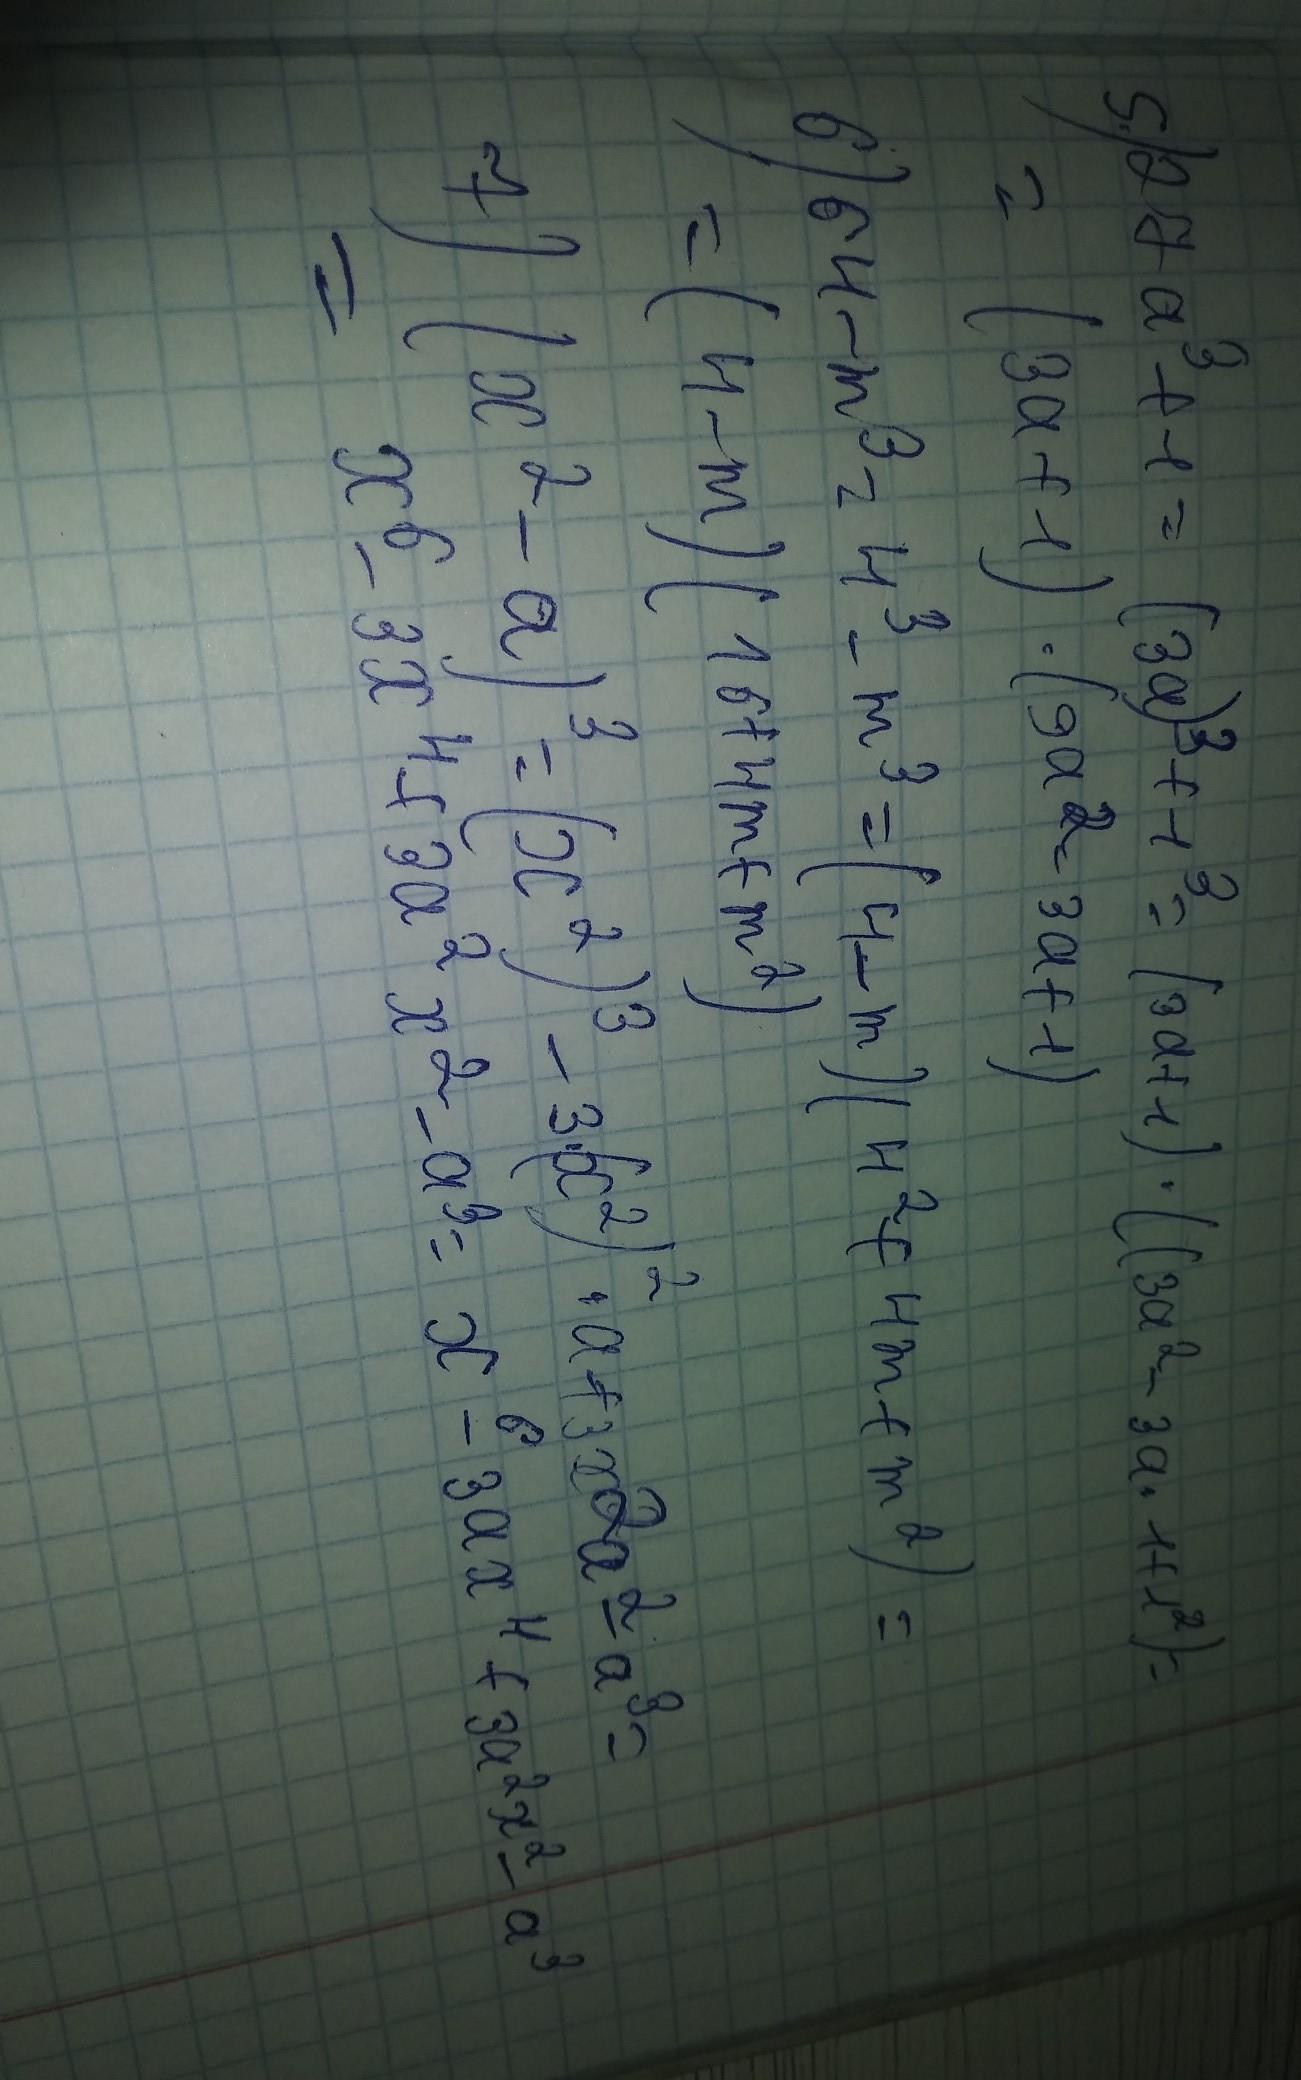 5.) 27a³+1 = (3a)³+1³ = (3a+1)·((3a²-3a·1+1²)=
= (3a+1)·(9a²-3a+1)
6) 64-m³ = 4³-m³ = (4-m)(4²+4m+m²) =
= (4-m)(16+4m+m²)
7) (x²-a)³ = (x²)³ - 3(x²)²·a+3x²a²-a³=
= x⁶-3x⁴+3a²x²-a³= x⁶-3ax⁴+3a²x²-a³